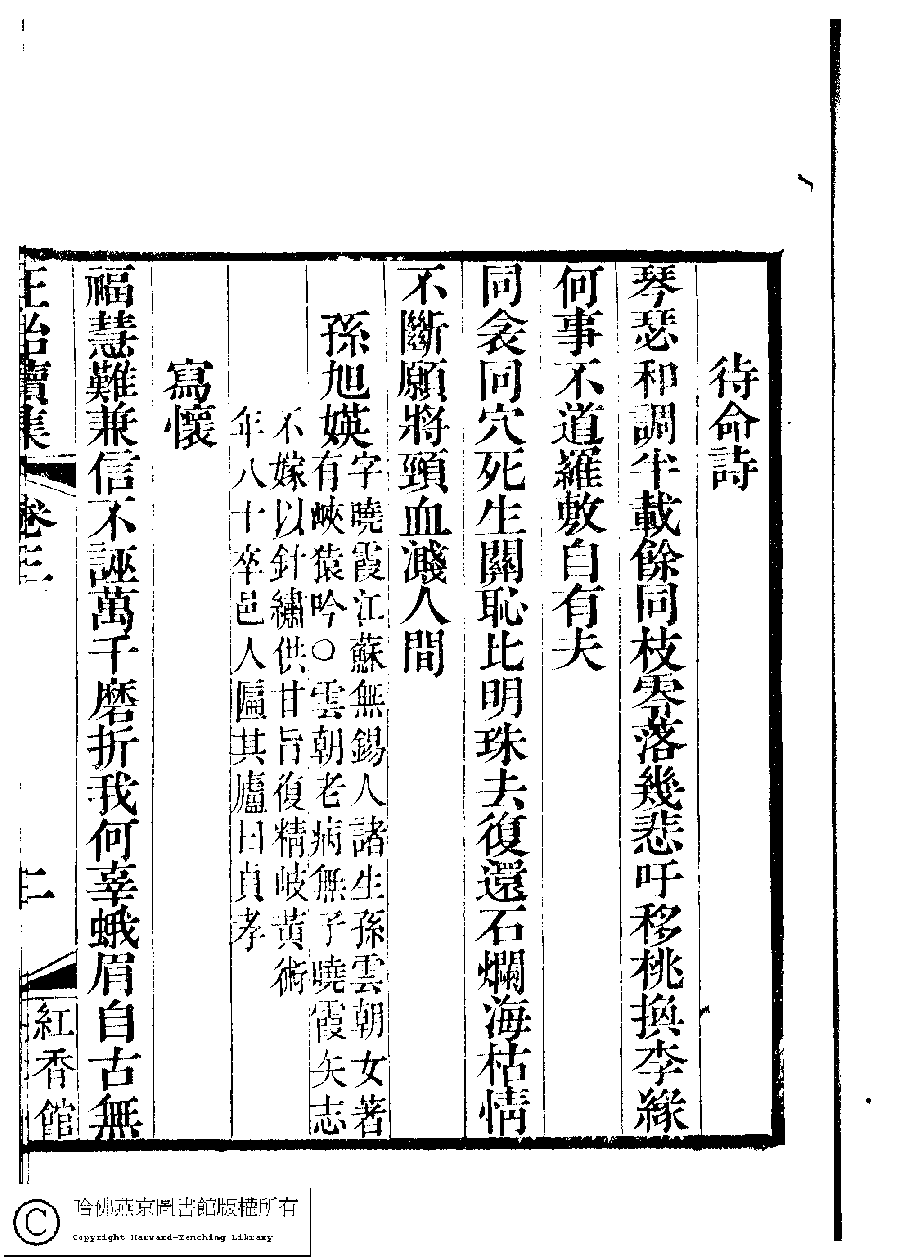 待命詩
琴瑟和調半載餘同枝零落幾悲吁移桃換李緣
何事不道羅敷自有夫
同衾同穴死生關恥比明珠去復還石爛海枯情
不斷願將頸血濺人間
孫旭媖字曉霞江蘇無錫人諸生孫雲朝女著
有峽猿吟○雲朝老病無子曉霞矢志
不嫁以針繡供甘旨復精岐黃術
年八十卒邑人匾其廬曰貞孝
寫懷
福慧難兼信不誣萬千磨折我何辜蛾眉自古無
正始續集 卷三 二 紅香館
哈佛燕京圖書館版權所有
Copyright Harvard-Yenching Library